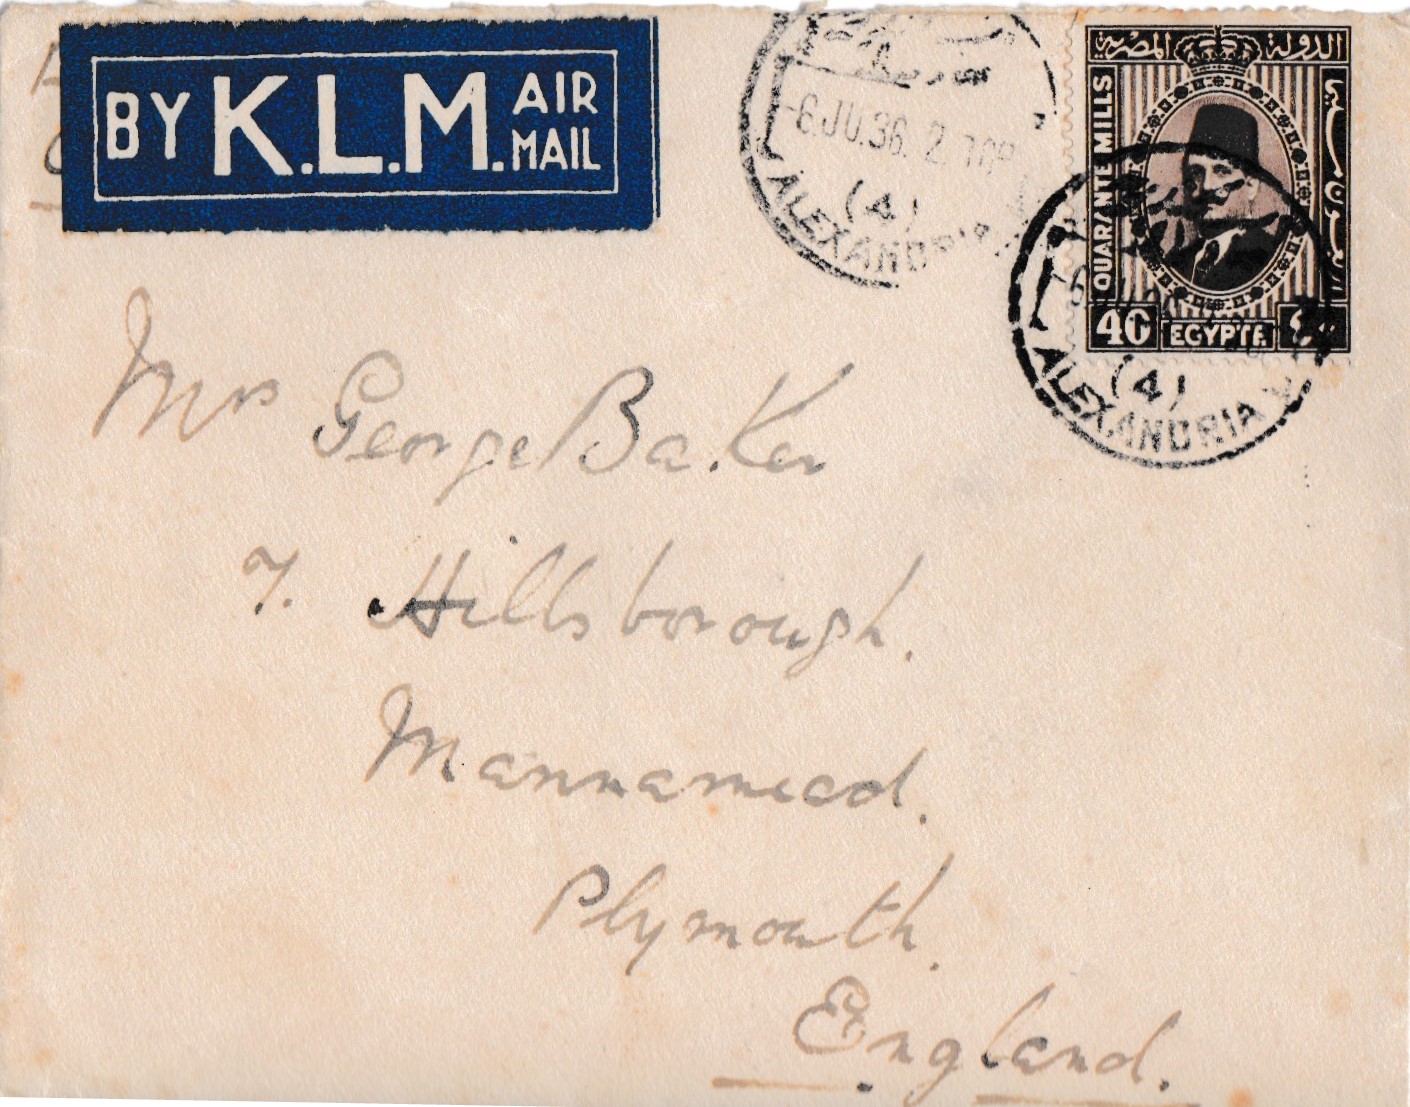 BY K.L.M. AIR MAIL
-6.JU.36. 2
(4)
ALEXANDRIA
الدولة المصرية
QUARANTE MILLS
40 EGYPTE ٤٠
(4)
ALEXANDRIA
Mrs George Baker
7. Hillsborough.
Mannamead.
Plymouth.
England.